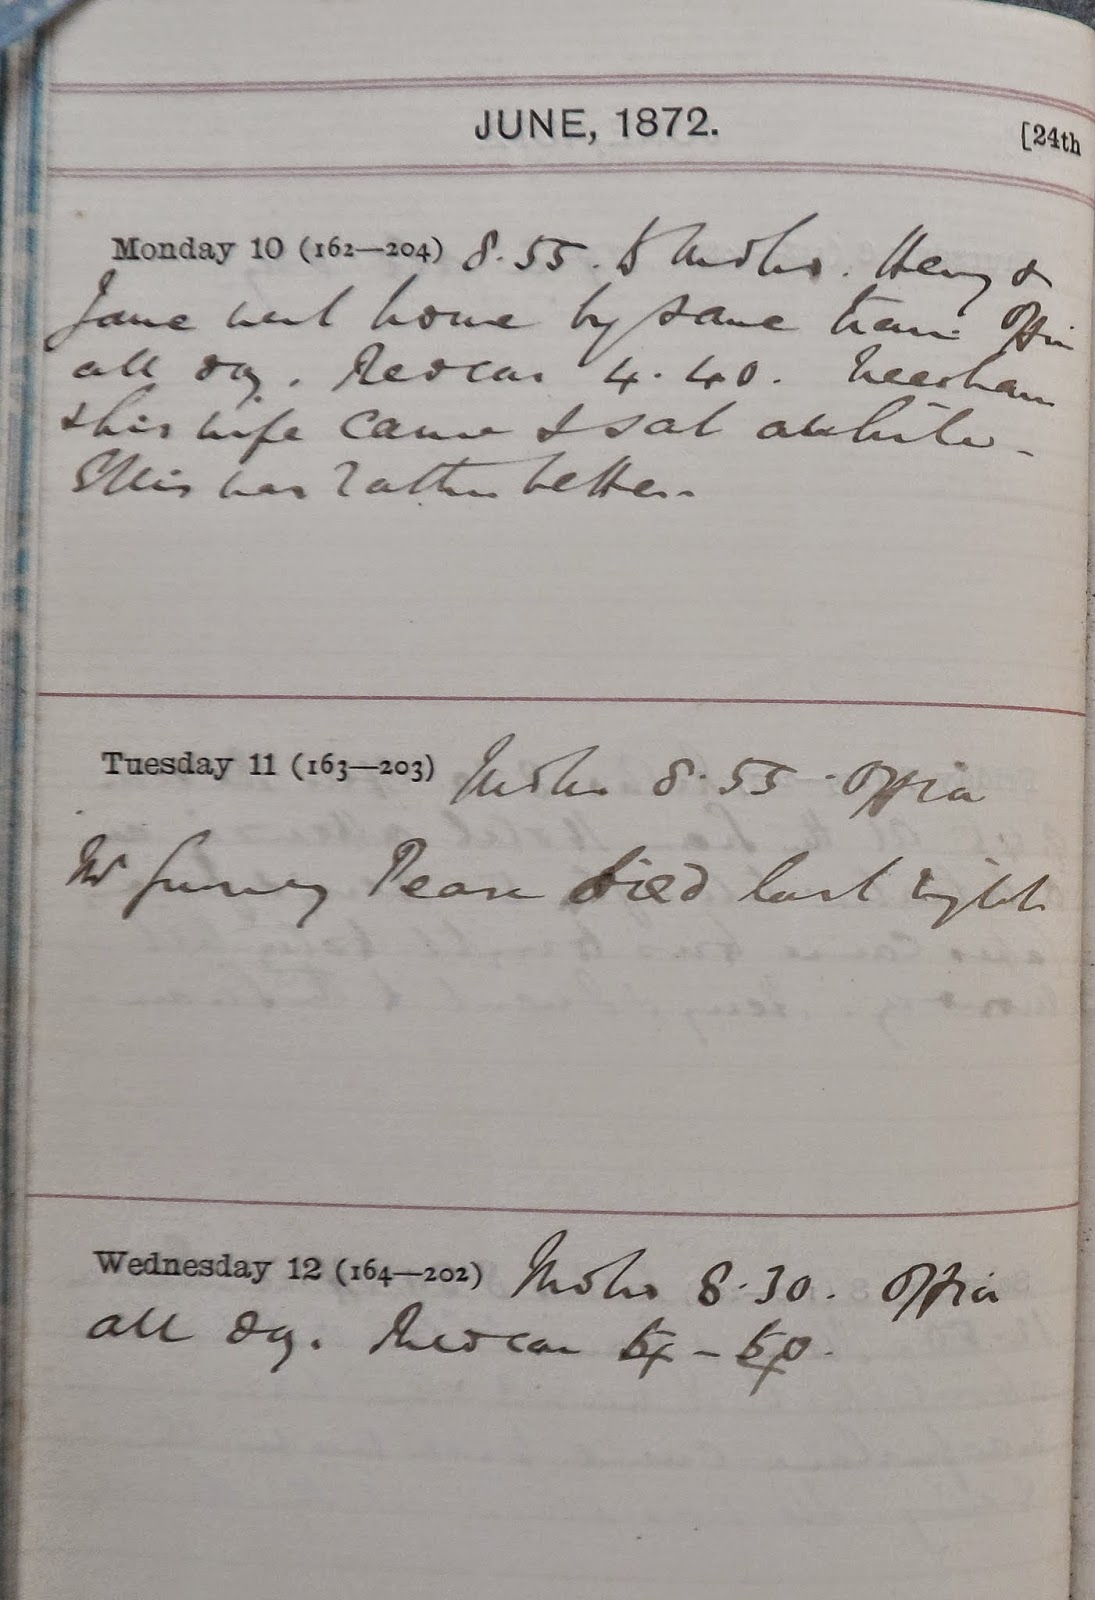 JUNE, 1872. [24th
Monday 10 (162—204) 8.55. to Mdbro. Henry &
Jane went home by same train Office
all day. Redcar 4.40. Needham
& his wife came & sat awhile -
Ellis was rather better.
Tuesday 11 (163—203) Mdbro 8.55. Office
Mr Gurney Pease died last night
Wednesday 12 (164—202) Mdbro 8.30. Office
all day. Redcar